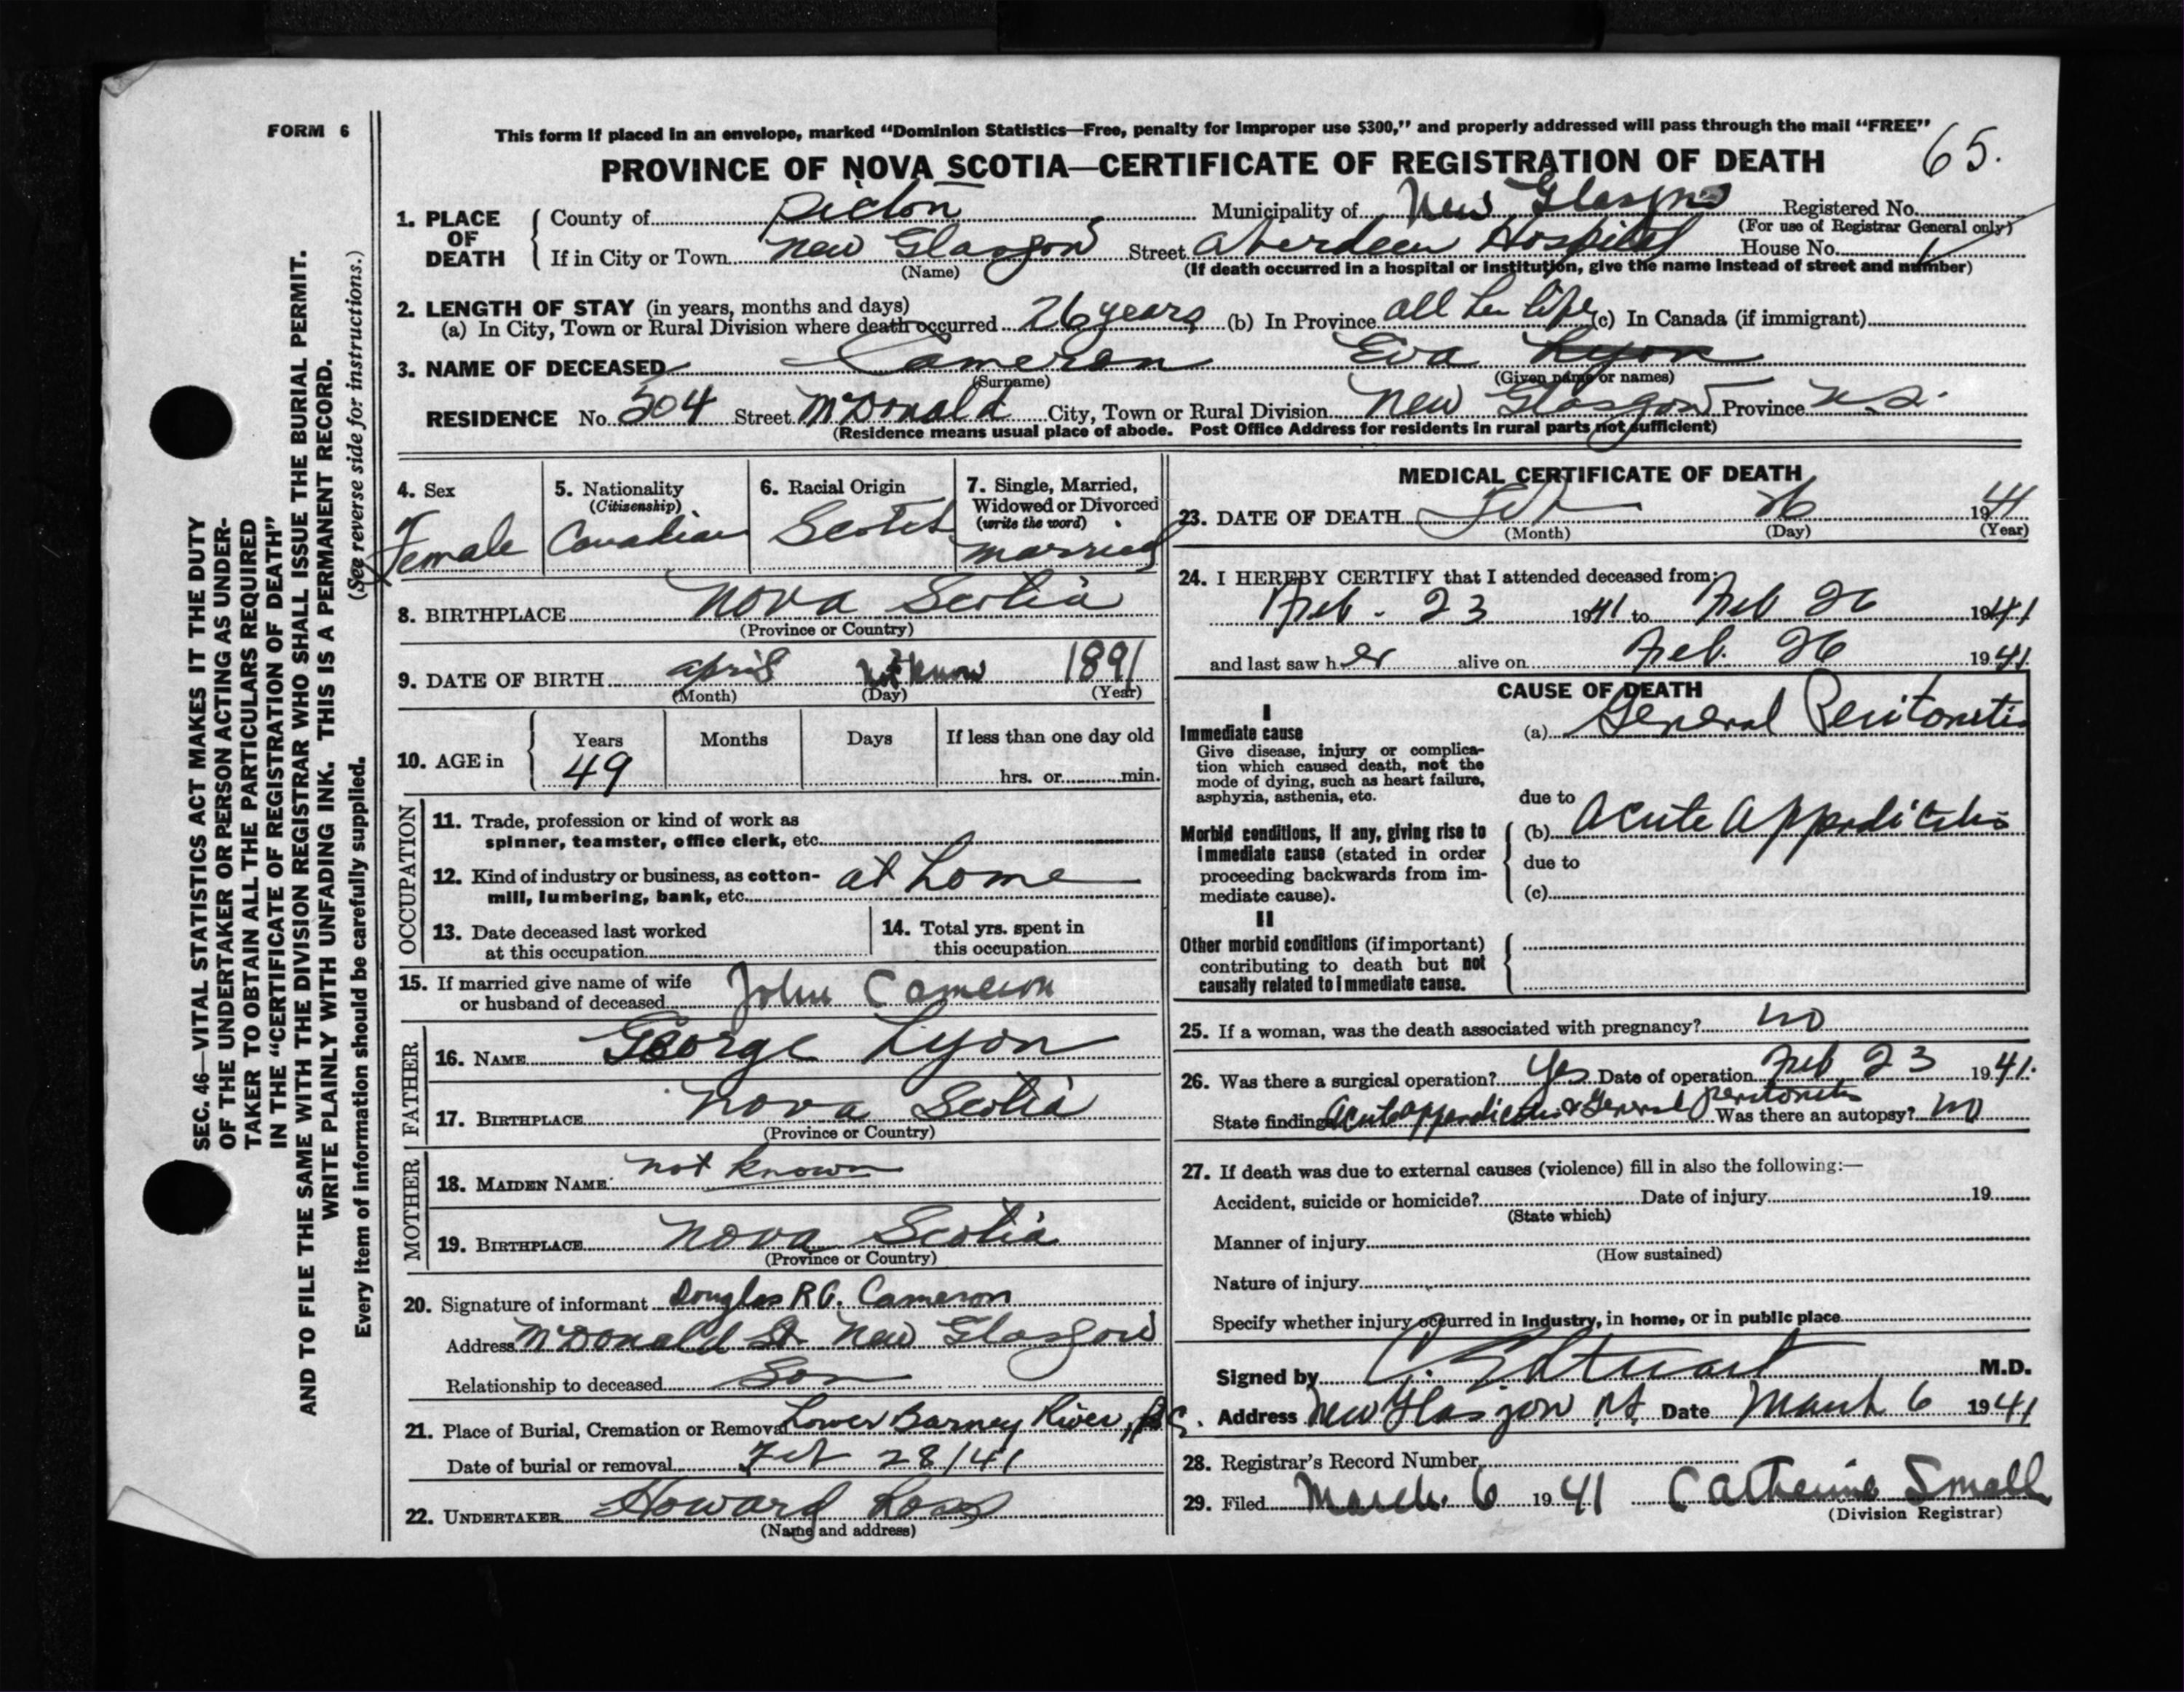 FORM 6
This form if placed in an envelope, marked “Dominion Statistics—Free, penalty for improper use $300,” and properly addressed will pass through the mail “FREE”
PROVINCE OF NOVA SCOTIA—CERTIFICATE OF REGISTRATION OF DEATH 65.
1. PLACE OF DEATH
County of Pictou Municipality of New Glasgow Registered No.
(For use of Registrar General only)
If in City or Town New Glasgow Street Aberdeen Hospital House No.
(Name) (If death occurred in a hospital or institution, give the name instead of street and number)
2. LENGTH OF STAY (in years, months and days)
(a) In City, Town or Rural Division where death occurred 26 years (b) In Province all her life (c) In Canada (if immigrant)
3. NAME OF DECEASED Cameron Eva Lyon
(Surname) (Given name or names)
RESIDENCE No. 504 Street McDonald City, Town or Rural Division New Glasgow Province N.S.
(Residence means usual place of abode. Post Office Address for residents in rural parts not sufficient)
4. Sex
Female
5. Nationality
(Citizenship)
Canadian
6. Racial Origin
Scotch
7. Single, Married,
Widowed or Divorced
(write the word)
married
8. BIRTHPLACE Nova Scotia
(Province or Country)
9. DATE OF BIRTH April not know 1891
(Month) (Day) (Year)
10. AGE in
Years Months Days If less than one day old
49 hrs. or min.
OCCUPATION
11. Trade, profession or kind of work as
spinner, teamster, office clerk, etc.
12. Kind of industry or business, as cotton-
mill, lumbering, bank, etc. at home
13. Date deceased last worked
at this occupation
14. Total yrs. spent in
this occupation
15. If married give name of wife
or husband of deceased John Cameron
FATHER
16. NAME George Lyon
17. BIRTHPLACE Nova Scotia
(Province or Country)
MOTHER
18. MAIDEN NAME not known
19. BIRTHPLACE Nova Scotia
(Province or Country)
20. Signature of informant Douglas R.G. Cameron
Address McDonald St. New Glasgow
Relationship to deceased Son
21. Place of Burial, Cremation or Removal Lower Barney River,
Date of burial or removal Feb 28/41
22. UNDERTAKER Howard
(Name and address)
MEDICAL CERTIFICATE OF DEATH
23. DATE OF DEATH Feb 26 1941
(Month) (Day) (Year)
24. I HEREBY CERTIFY that I attended deceased from:
Feb. 23 1941 to Feb 26 1941
and last saw her alive on Feb. 26 1941
CAUSE OF DEATH
I
Immediate cause
Give disease, injury or complica-
tion which caused death, not the
mode of dying, such as heart failure,
asphyxia, asthenia, etc.
(a) General Peritonitis
due to
Morbid conditions, if any, giving rise to
immediate cause (stated in order
proceeding backwards from im-
mediate cause).
(b) Acute Appendicitis
due to
(c)
II
Other morbid conditions (if important)
contributing to death but not
causally related to immediate cause.
25. If a woman, was the death associated with pregnancy? no
26. Was there a surgical operation? Yes Date of operation Feb 23 1941.
State findings Acute appendicitis & General Peritonitis Was there an autopsy? no
27. If death was due to external causes (violence) fill in also the following:—
Accident, suicide or homicide? Date of injury 19
(State which)
Manner of injury
(How sustained)
Nature of injury
Specify whether injury occurred in industry, in home, or in public place
Signed by Stuart M.D.
Address New Glasgow Date March 6 1941
28. Registrar's Record Number
29. Filed March 6 1941 Catherine Small
(Division Registrar)
SEC. 46—VITAL STATISTICS ACT MAKES IT THE DUTY
OF THE UNDERTAKER OR PERSON ACTING AS UNDER-
TAKER TO OBTAIN ALL THE PARTICULARS REQUIRED
IN THE “CERTIFICATE OF REGISTRATION OF DEATH”
AND TO FILE THE SAME WITH THE DIVISION REGISTRAR WHO SHALL ISSUE THE BURIAL PERMIT.
WRITE PLAINLY WITH UNFADING INK. THIS IS A PERMANENT RECORD.
Every item of information should be carefully supplied. (See reverse side for instructions.)